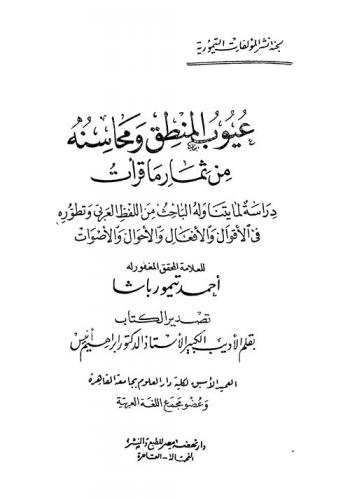 لجنة نشر المؤلفات التيمورية
عيوب المنطق ومحاسنه
من ثمار ما قرأت
دراسة لما يتناوله الباحث من اللفظ العربى وتطوره
فى الأقوال والأفعال والأحوال والأصوات
للعلامة المحقق المغفور له
أحمد تيمور باشا
تصدير الكتاب
بقلم الأديب الكبير الأستاذ الدكتور ابراهيم أنيس
العميد الأسبق لكلية دار العلوم بجامعة القاهرة
وعضو مجمع اللغة العربية
دار نهضة مصر للطبع والنشر
الفجالة - القاهرة